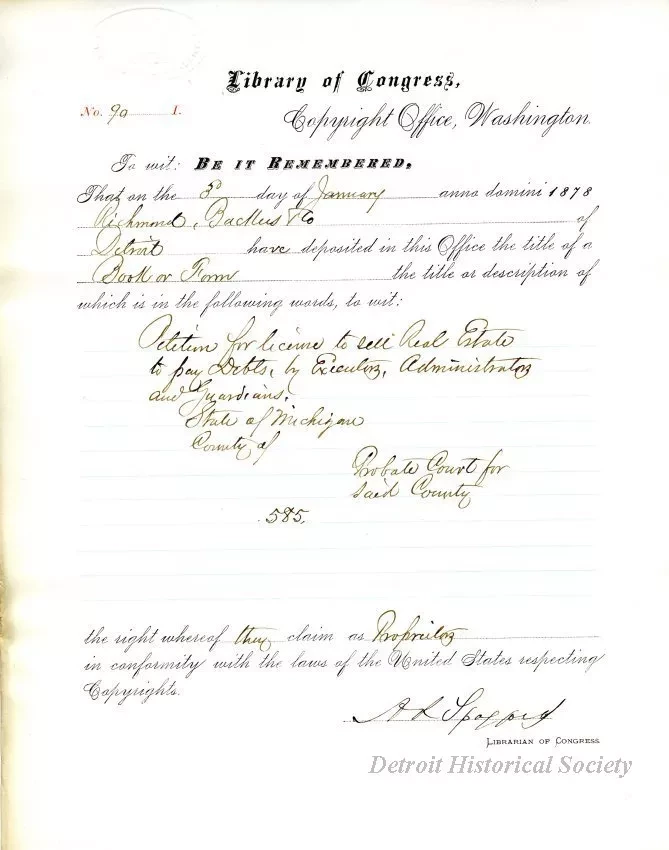 Library of Congress,
No. 90 I.
Copyright Office, Washington.
To wit: BE IT REMEMBERED,
That on the 5" day of January anno domini 1878
Richmond, Backus & Co of
Detroit have deposited in this Office the title of a
Book or Form the title or description of
which is in the following words, to wit:
Petition for license to sell Real Estate
to pay Debts, by Executors, Administrators
and Guardians.
State of Michigan
County of
Probate Court for
said County
585.
the right whereof they claim as Proprietors
in conformity with the laws of the United States respecting
Copyrights.
A R Spofford
LIBRARIAN OF CONGRESS
Detroit Historical Society